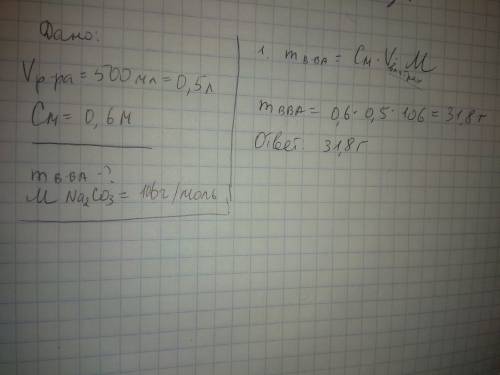 Дано:
Vр-ра = 500 мл = 0,5л
См = 0,6 М
m в-ва - ?
M Na₂CO₃ = 106г/моль
1. m в-ва = См · V · M
m в-ва = 0,6 · 0,5 · 106 = 31,8 г
Ответ: 31,8 г